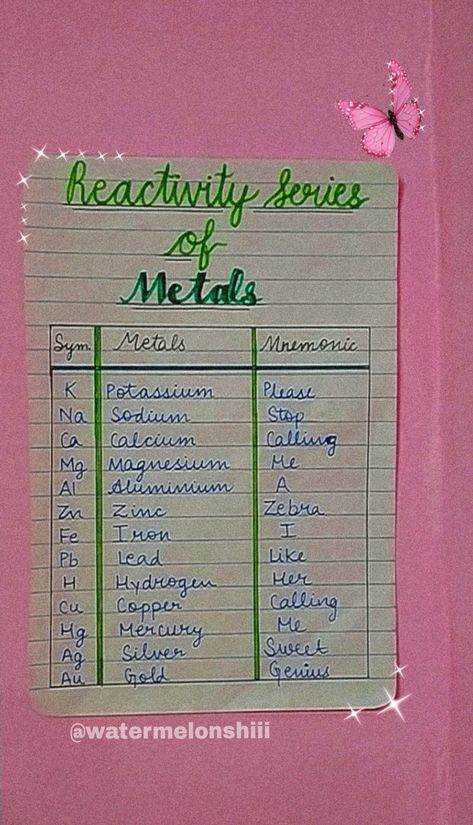 Reactivity Series
of
Metals
Sym. Metals Mnemonic
K Potassium Please
Na Sodium Stop
Ca Calcium Calling
Mg Magnesium Me
Al Aluminium A
Zn Zinc Zebra
Fe Iron I
Pb Lead Like
H Hydrogen Her
Cu Copper Calling
Hg Mercury Me
Ag Silver Sweet
Au Gold Genius
@watermelonshiii